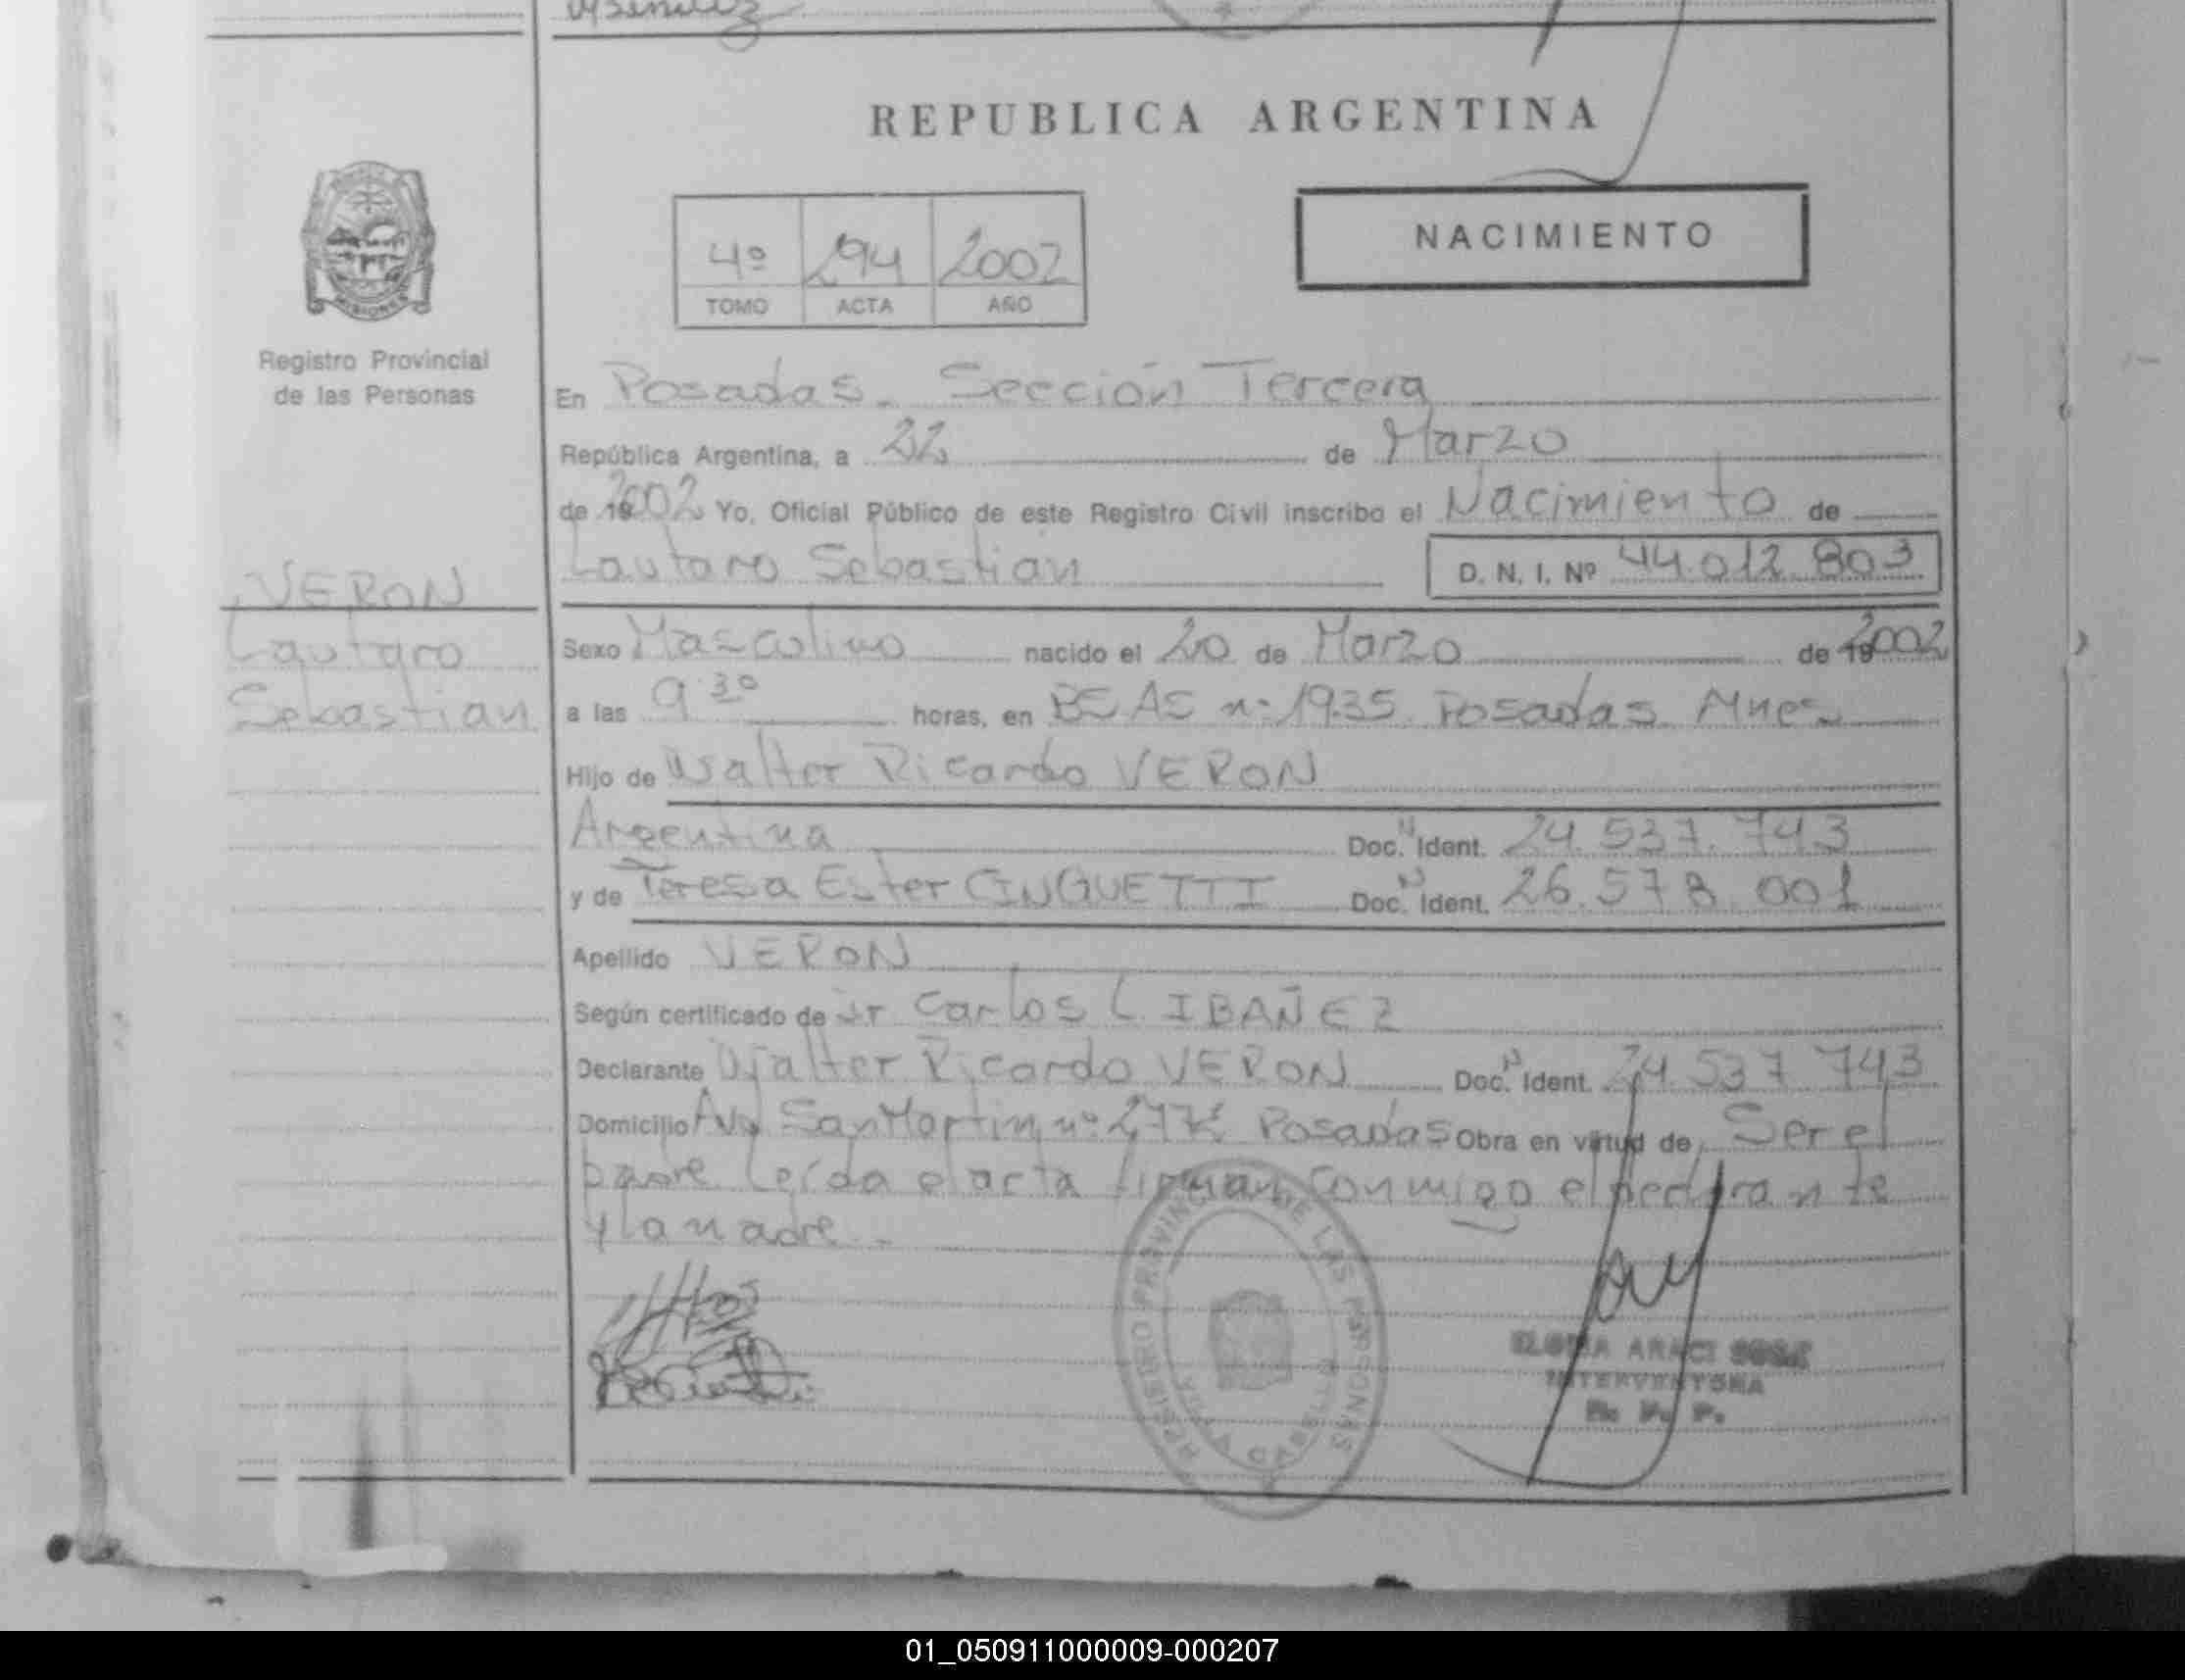 REPUBLICA ARGENTINA
NACIMIENTO
4º 294 2002
TOMO ACTA AÑO
MISIONES
Registro Provincial
de las Personas
En Posadas. Sección Tercera
República Argentina, a 22 de Marzo
de 2002 Yo, Oficial Público de este Registro Civil inscribo el Nacimiento de
Lautaro Sebastián D. N. I. Nº 44.012.803
VERON
Lautaro
Sebastian
Sexo Masculino nacido el 20 de Marzo de 2002
a las 9 30 horas, en BS AS nº 1935 Posadas Mnes
Hijo de Walter Ricardo VERON
Argentina Doc. N Ident. 24.537.743
y de Teresa Ester CINGUETTI Doc. N Ident. 26.578.001
Apellido VERON
Según certificado de Dr Carlos L IBAÑEZ
Declarante Walter Ricardo VERON Doc. N Ident. 24.537.743
Domicilio Av San Martin nº Posadas Obra en virtud de Ser el
padre. Leída el acta firman conmigo el declarante
y la madre.-
REGISTRO PROVINCIAL DE LAS PERSONAS
VILLA CABELLO
ARACI
INTERVENTORA
R. P. P.
01_050911000009-000207